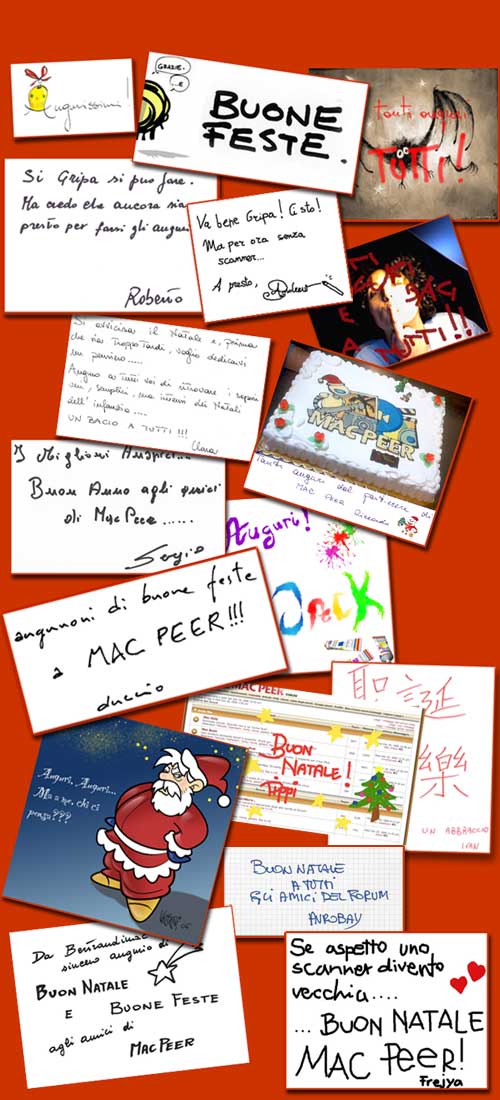 Augurissimi!
GRAZIE.
...E
BUONE
FESTE.
tanti auguri
TUTTI!
Si Gripa si può fare.
Ma credo che ancora sia
presto per farsi gli auguri
Roberto
Va bene Gripa! Ci sto!
Ma per ora senza
scanner...
A presto,
A TUTTI!!
Si avvicina il Natale e, prima
che sia troppo tardi, voglio dedicarvi
un pensiero.....
Auguro a tutti voi di ritrovare i sapori
veri, semplici, ma intensi dei Natali
dell'infanzia....
UN BACIO A TUTTI!!!
Clara
MACPEER
Tanti auguri dal pasticcere di
MAC Peer Riccardo
I Migliori Auspici...
Buon Anno agli amici
di MacPeer......
Sergio
Auguri!
Jack
auguroni di buone feste
a MAC PEER!!!
duccio
MAC PEER
BUON
NATALE!
Tippi
聖誕
樂
UN ABBRACCIO
IVAN
Auguri, Auguri...
Ma a me, chi ci
pensa???
BUON NATALE
A TUTTI
GLI AMICI DEL FORUM
AVROBAY
Da Bertrandimat
sincero augurio di
BUON NATALE
E BUONE FESTE
agli amici di
MACPEER
Se aspetto uno
scanner divento
vecchia....
...BUON NATALE
MAC PEER!
Frejya